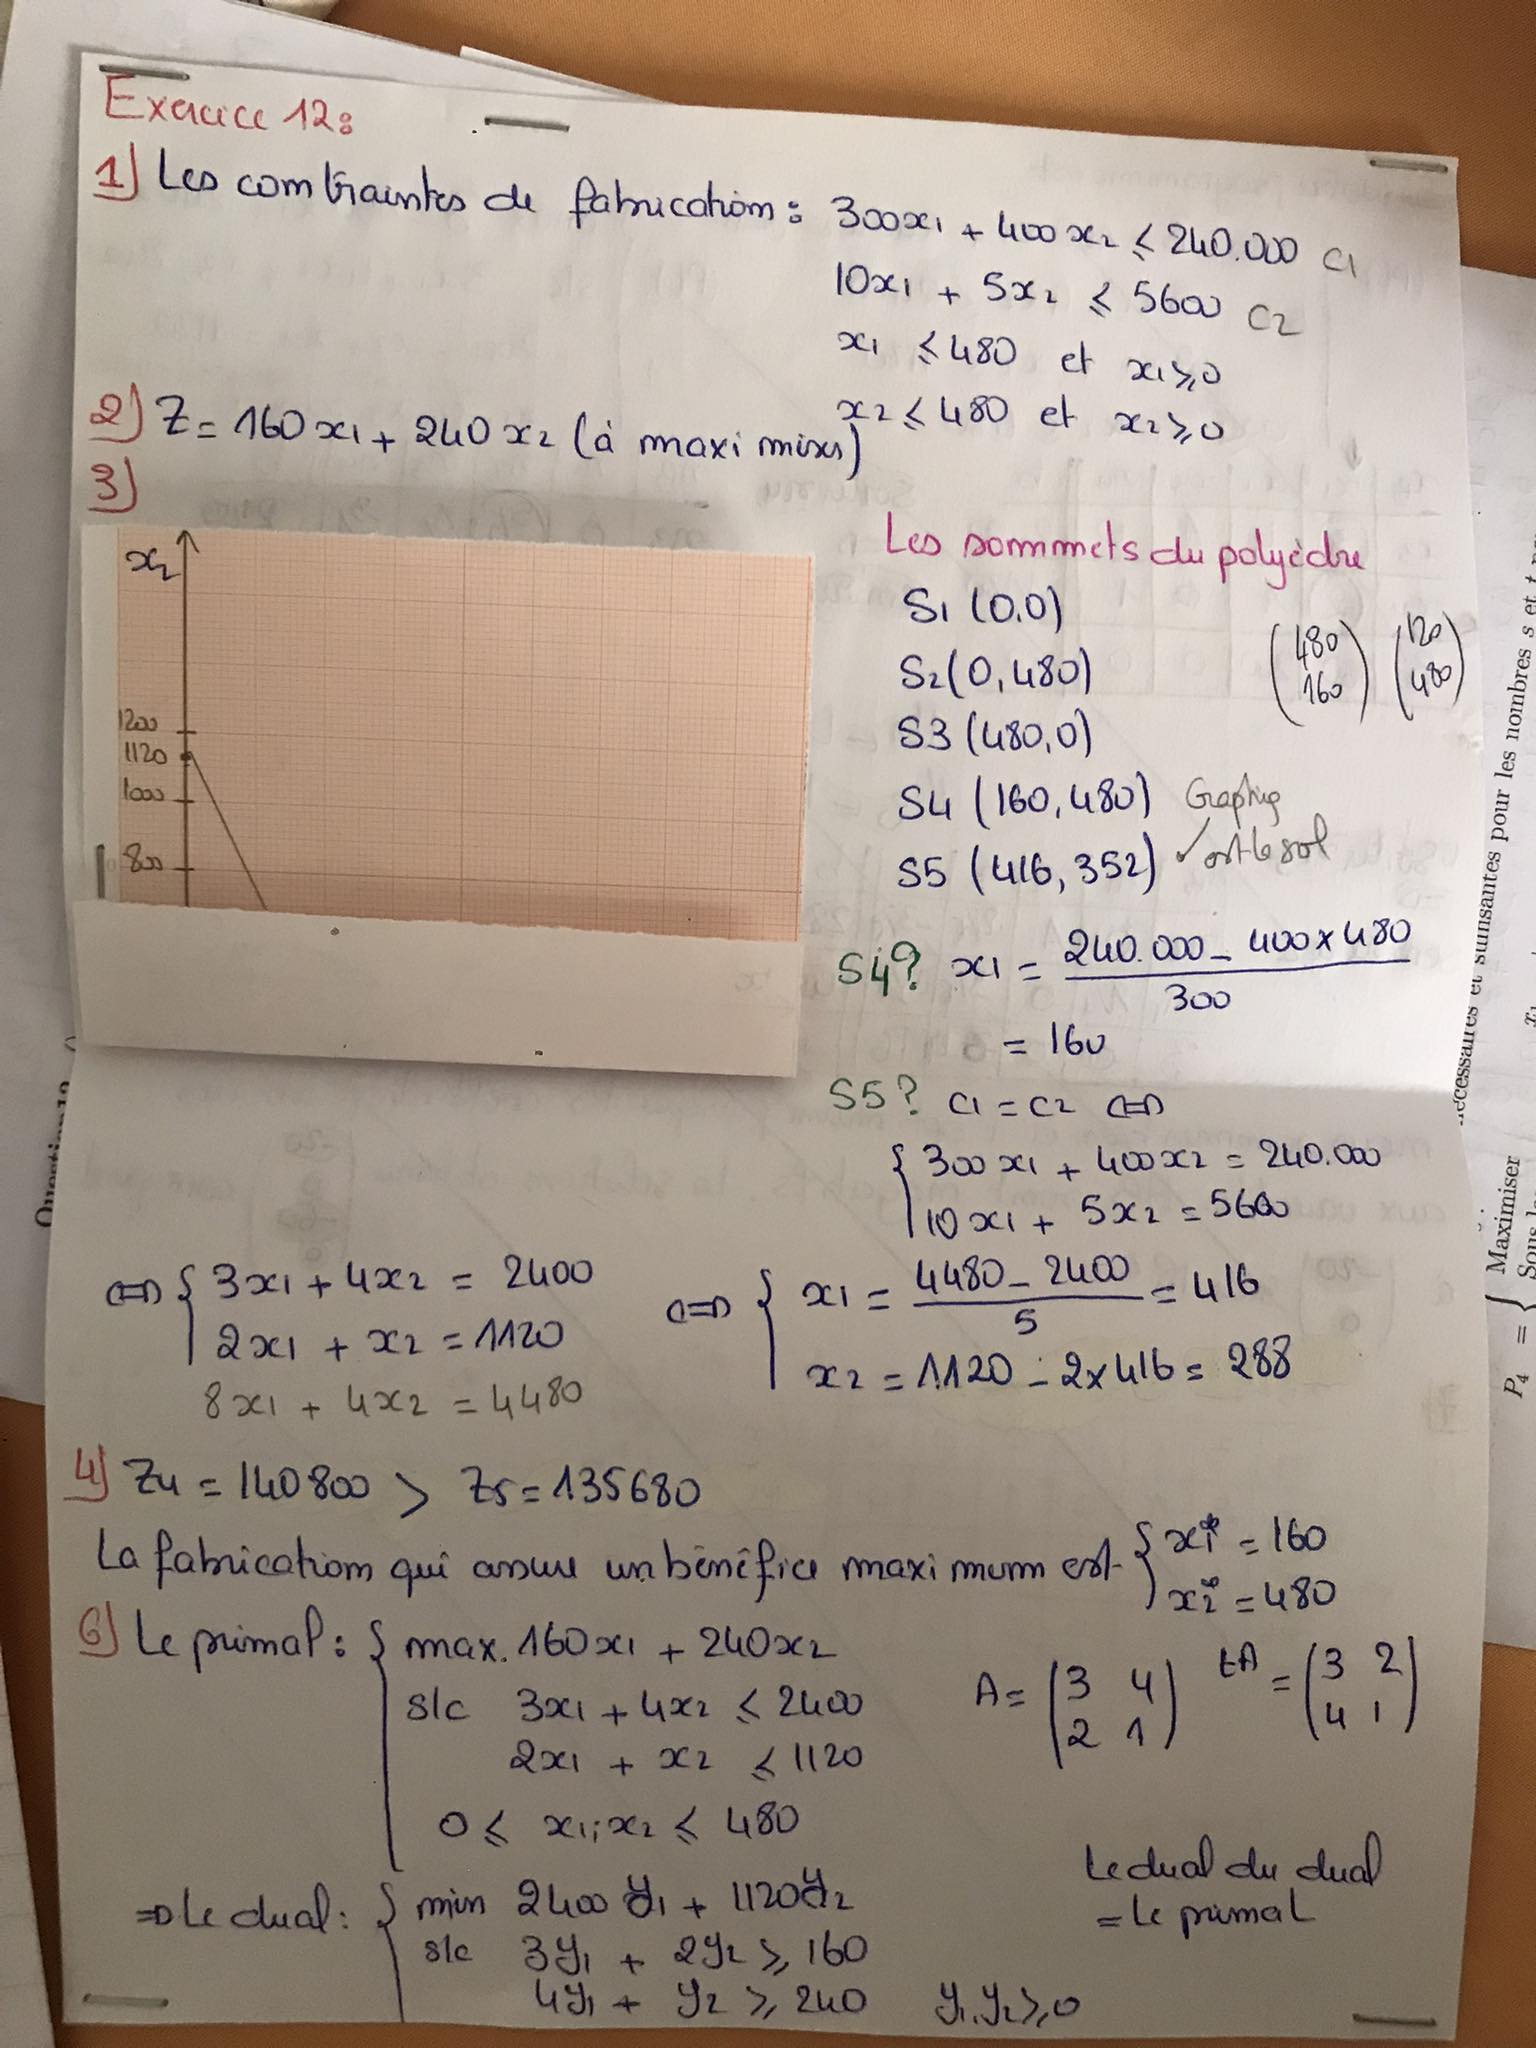 Exercice 12:
1) Les contraintes de fabrication: 300x1 + 400x2 ≤ 240.000 C1
10x1 + 5x2 ≤ 5600 C2
x1 ≤ 480 et x1 ≥ 0
x2 ≤ 480 et x2 ≥ 0
2) Z = 160x1 + 240x2 (à maximiser)
3)
x2
1200
1120
1000
800
Les sommets du polyèdre
S1 (0,0)
S2 (0,480)
S3 (480,0)
S4 (160,480) Graphiq
S5 (416,352) ✓ est le sol
(480 160) (120 480)
S4? x1 = (240.000 - 400×480) / 300
= 160
S5? C1 = C2 ⇔
{ 300x1 + 400x2 = 240.000
10x1 + 5x2 = 5600
⇔ { 3x1 + 4x2 = 2400
2x1 + x2 = 1120
8x1 + 4x2 = 4480
⇔ { x1 = (4480 - 2400) / 5 = 416
x2 = 1120 - 2×416 = 288
4) Z4 = 140800 > Z5 = 135680
La fabrication qui assure un bénéfice maximum est { x1* = 160
x2* = 480
6) Le primal: { max. 160x1 + 240x2
s/c 3x1 + 4x2 ≤ 2400
2x1 + x2 ≤ 1120
0 ≤ x1; x2 ≤ 480
A = (3 4 2 1) tA = (3 2 4 1)
⇒ Le dual: { min 2400y1 + 1120y2
s/c 3y1 + 2y2 ≥ 160
4y1 + y2 ≥ 240 y1,y2 ≥ 0
Le dual du dual
= le primal
nécessaires et suffisantes pour les nombres s et t
P4 = { Maximiser
Sous